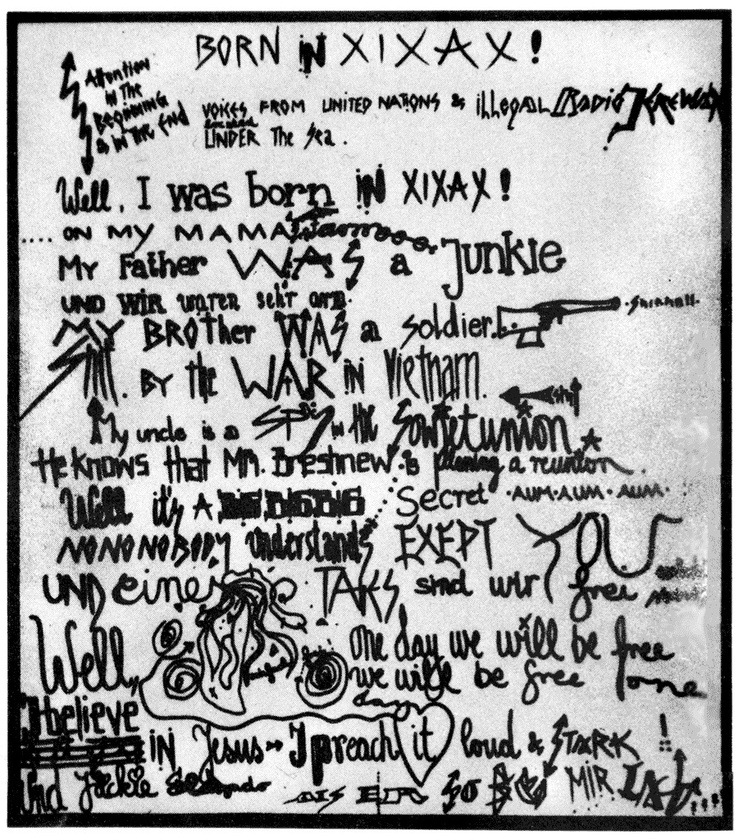 BORN IN XIXAX!
Attention
in the
Beginning
& in the End
VOICES FROM UNITED NATIONS & illegal Radio Jerewan
UNDER The Sea.
Well, I was born IN XIXAX!
.... ON MY MAMA
My Father WAS a Junkie
UND WIR waren sehr arm.
MY BROther WAS a soldier.
Shit. BY the WAR iN Vietnam.
My uncle is a SPY in the Sowjetunion
He knows that MR. Breshnew is planing a reunion.
Well it's A BIG BIG BIG Secret ·AUM·AUM·AUM·
NO NO NOBODY understands EXEPT YOU
UND eines TAGES sind wir free
Well, One day we will be free
we will be free some
day
I believe
IN Jesus I preach it loud & STARK !
Und Jackie